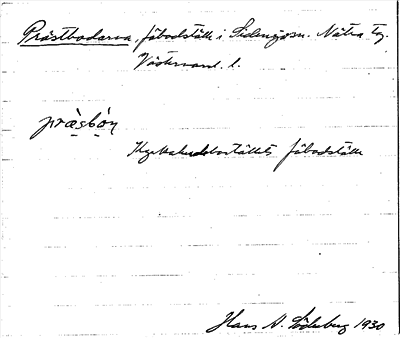 Prästbodarna, fäbodställe i Sidensjösn. Nätra tg.
Västernorrl. l.
præsbo̱n
Kyrkoherdebostället fäbodställe
Hans W. Söderberg 1930